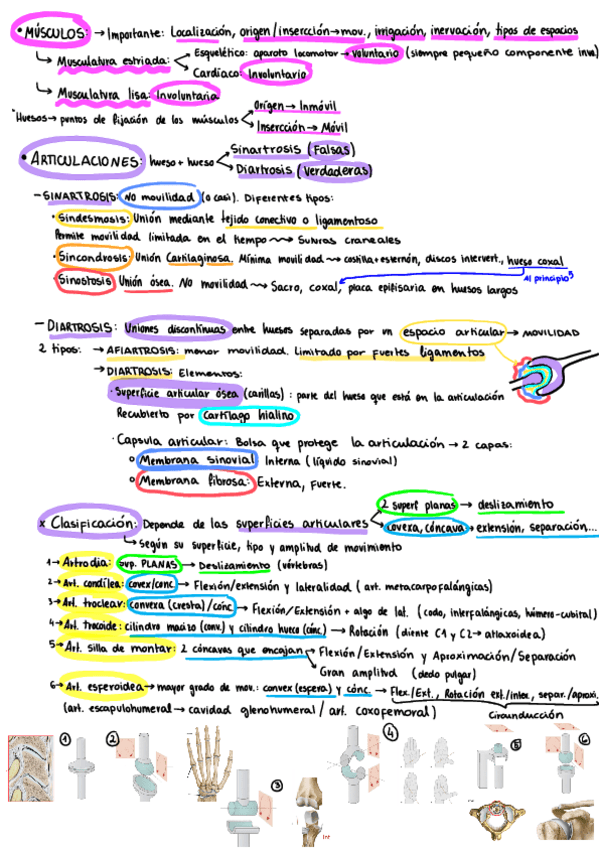 • MÚSCULOS: → Importante: Localización, origen/insercción→mov., irrigación, inervación, tipos de espacios
↳ Musculatura estriada: Esquelético: aparato locomotor → voluntario (siempre pequeño componente inv.)
Cardíaco: Involuntario
↳ Musculatura lisa: Involuntaria
• Huesos → puntos de fijación de los músculos Orígen → Inmóvil
Insercción → Móvil
• ARTICULACIONES: hueso + hueso Sinartrosis (Falsas)
Diartrosis (Verdaderas)
- SINARTROSIS: No movilidad (o casi). Diferentes tipos:
· Sindesmosis: Unión mediante tejido conectivo o ligamentoso
Permite movilidad limitada en el tiempo → Suturas craneales
· Sincondrosis: Unión Cartilaginosa. Mínima movilidad → costilla + esternón, discos intervert., hueso coxal
Al principio
· Sinostosis Unión ósea. No movilidad → Sacro, coxal, placa epifisaria en huesos largos
- DIARTROSIS: Uniones discontinuas entre huesos separadas por un espacio articular → MOVILIDAD
2 tipos: → AFIARTROSIS: menor movilidad. Limitado por fuertes ligamentos
→ DIARTROSIS: Elementos:
· Superficie articular ósea (carillas): parte del hueso que está en la articulación
Recubierto por Cartílago hialino
· Capsula articular: Bolsa que protege la articulación → 2 capas:
o Membrana sinovial Interna (líquido sinovial)
o Membrana fibrosa: Externa, fuerte.
x Clasificación: Depende de las superficies articulares 2 superf planas → deslizamiento
covexa, cóncava → extensión, separación...
↳ Según su superficie, tipo y amplitud de movimiento
1→ Artrodia: sup. PLANAS → Deslizamiento (vértebras)
2→ Art. condílea: covex/conc. → Flexión/extensión y lateralidad (art. metacarpofalángicas)
3→ Art. troclear: convexa (cresta)/cónc → Flexión/Extensión + algo de lat. (codo, interfalángicas, húmero-cubital)
4→ Art. trocoide: cilindro macizo (conv.) y cilindro hueco (cónc.) → Rotación (diente C1 y C2 → atloxoidea)
5→ Art. silla de montar: 2 cóncavas que encajan → Flexión/Extensión y Aproximación/Separación
Gran amplitud (dedo pulgar)
6→ Art. esferoidea → mayor grado de mov.: convex (esfera) y cónc. → Flex/Ext., Rotación ext/inter, separ./aproxi.
(art. escapulohumeral → cavidad glenohumeral / art. coxofemoral) Circunducción
1 2 3 4 5 6
Int